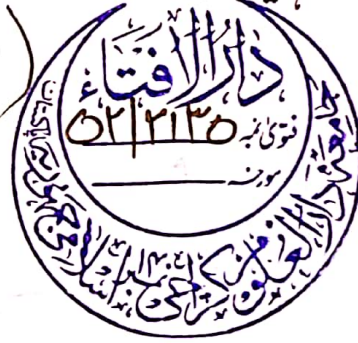 دار الافتاء
فتویٰ نمبر ۵۲/۲۱۳۵
مورخہ
جامعہ دارالعلوم کراچی نمبر ۱۴